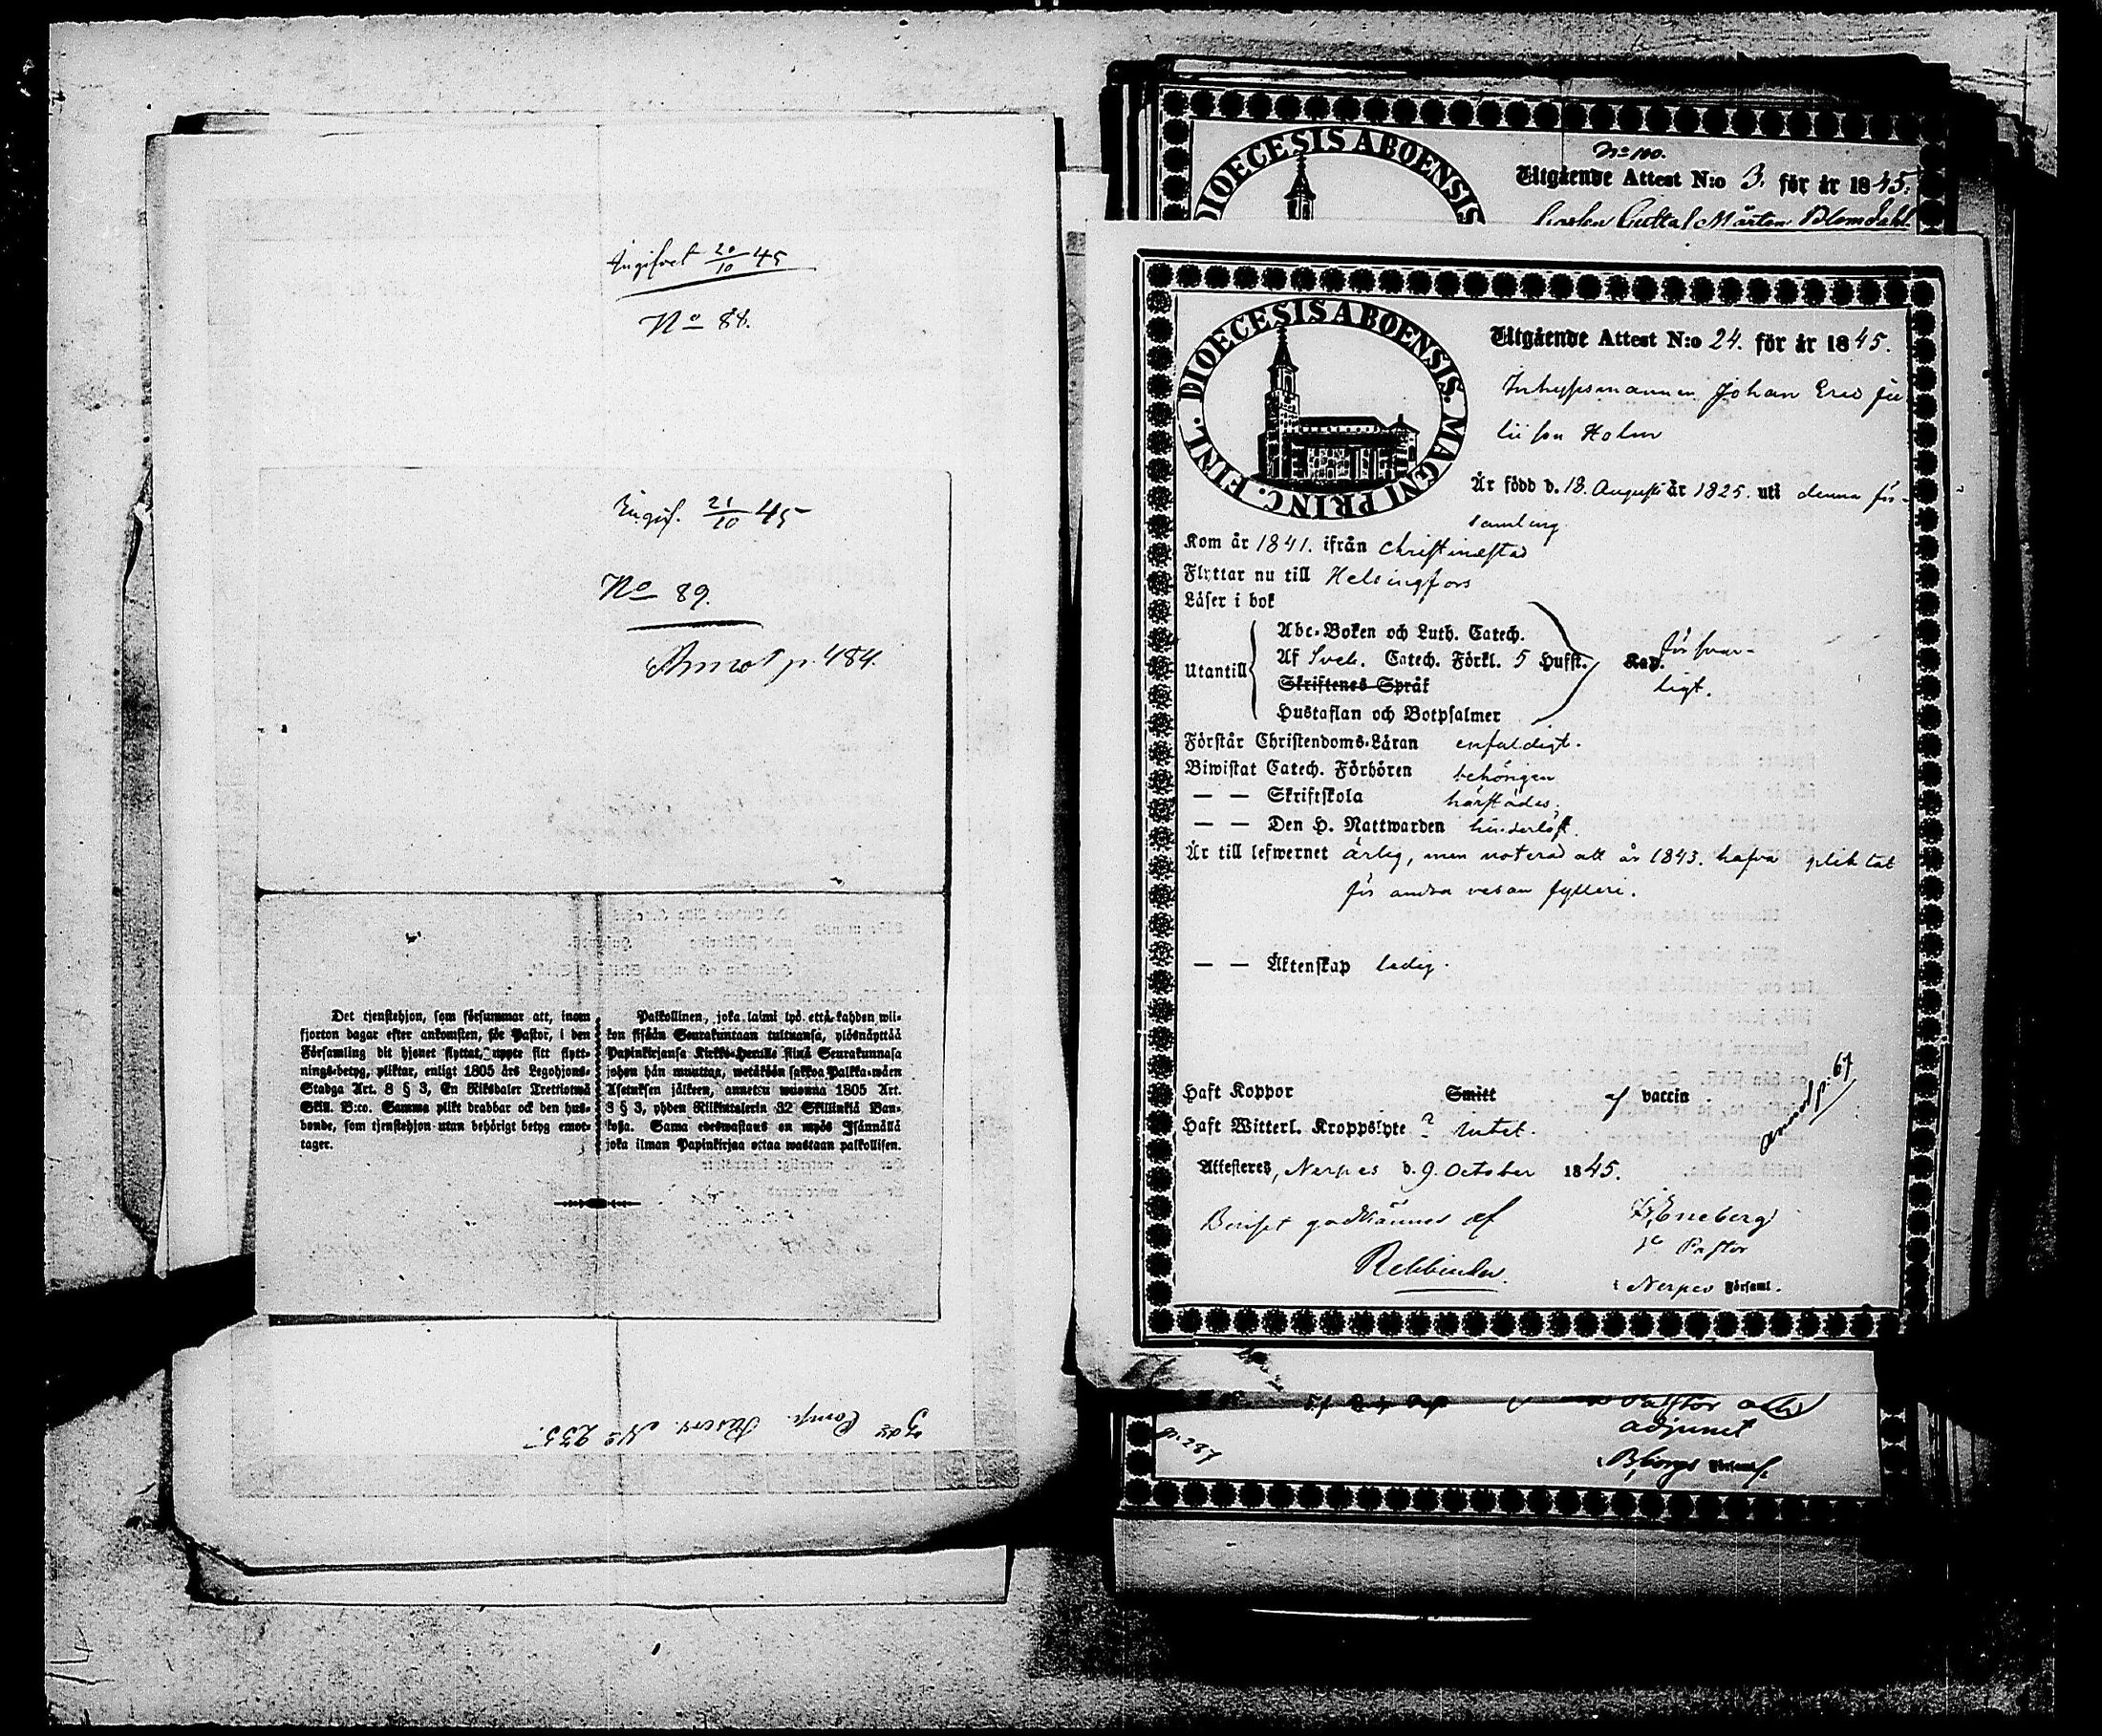 Ingifvet 20/10 45
No 88.
Ingif. 21/10 45
No 89.
Annot p. 484.
Det tjenstehjon, som försummar att, inom
fjorton dagar efter ankomsten, för Pastor, i den
Församling dit hjonet flyttat, uppte sitt flytt-
nings-betyg, pliktar, enligt 1805 års Legohjons-
Stadga Art. 8 § 3, En Riksdaler Trettiotwå
Skill. B:co. Samma plikt drabbar ock den hus-
bonde, som tjenstehjon utan behörigt betyg emot-
tager.
Palkollinen, joka laimi lyö, että kahden wii-
kon sisään Seurakuntaan tultuansa, ylösnäyttää
Papinkirjansa Kirkko-Herralle siinä Seurakunnasa
johon hän muuttaa, wetäköön sakkoa Palkka-wäen
Asetuksen jälkeen, annettu wuonna 1805 Art.
8 § 3, yhden Riikintalerin 32 Skillinkiä Ban-
kossa. Sama edeswastaus on myös Isännällä
joka ilman Papinkirjaa ottaa wastaan palkollisen.
Comp. No 235.
DIOECESIS ABOENSIS
No 100.
Utgående Attest N:o 3. för år 1845.
Gustaf Mårten Blomdahl
DIOECESIS ABOENSIS. MAGNI PRINC. FINL.
Utgående Attest N:o 24. för år 1845.
Inhysesmannen Johan Eric Ju
lii son Holm
Är född d. 18. Augusti år 1825. uti denna för-
samling.
Kom år 1841. ifrån Christinestad
Flyttar nu till Helsingfors
Läser i bok
Utantill
Abc-Boken och Luth. Catech.
Af Sveb. Catech. Förkl. 5 Hufst. Kap. försvar-
Skriftenes Språk ligt.
Hustaflan och Botpsalmer
Förstår Christendoms-Läran enfaldigt.
Biwistat Catech. Förhören behörigen
— — Skriftskola härstädes.
— — Den H. Nattwarden hinderlöst.
Är till lefwernet ärlig, men noterad att år 1843. hafva pliktat
för andra resan fylleri.
— — Äktenskap ledig.
Haft Koppor Smitt af vaccin
annot p. 67
Haft Witterl. Kroppslyte? Intet.
Attesteres, Nerpes d. 9. October 1845.
Beviset godkännes af
Rehbinder.
Eneberg
Pastor
i Nerpes Församl.
Pastor
adjunct
p. 287
i Församl.